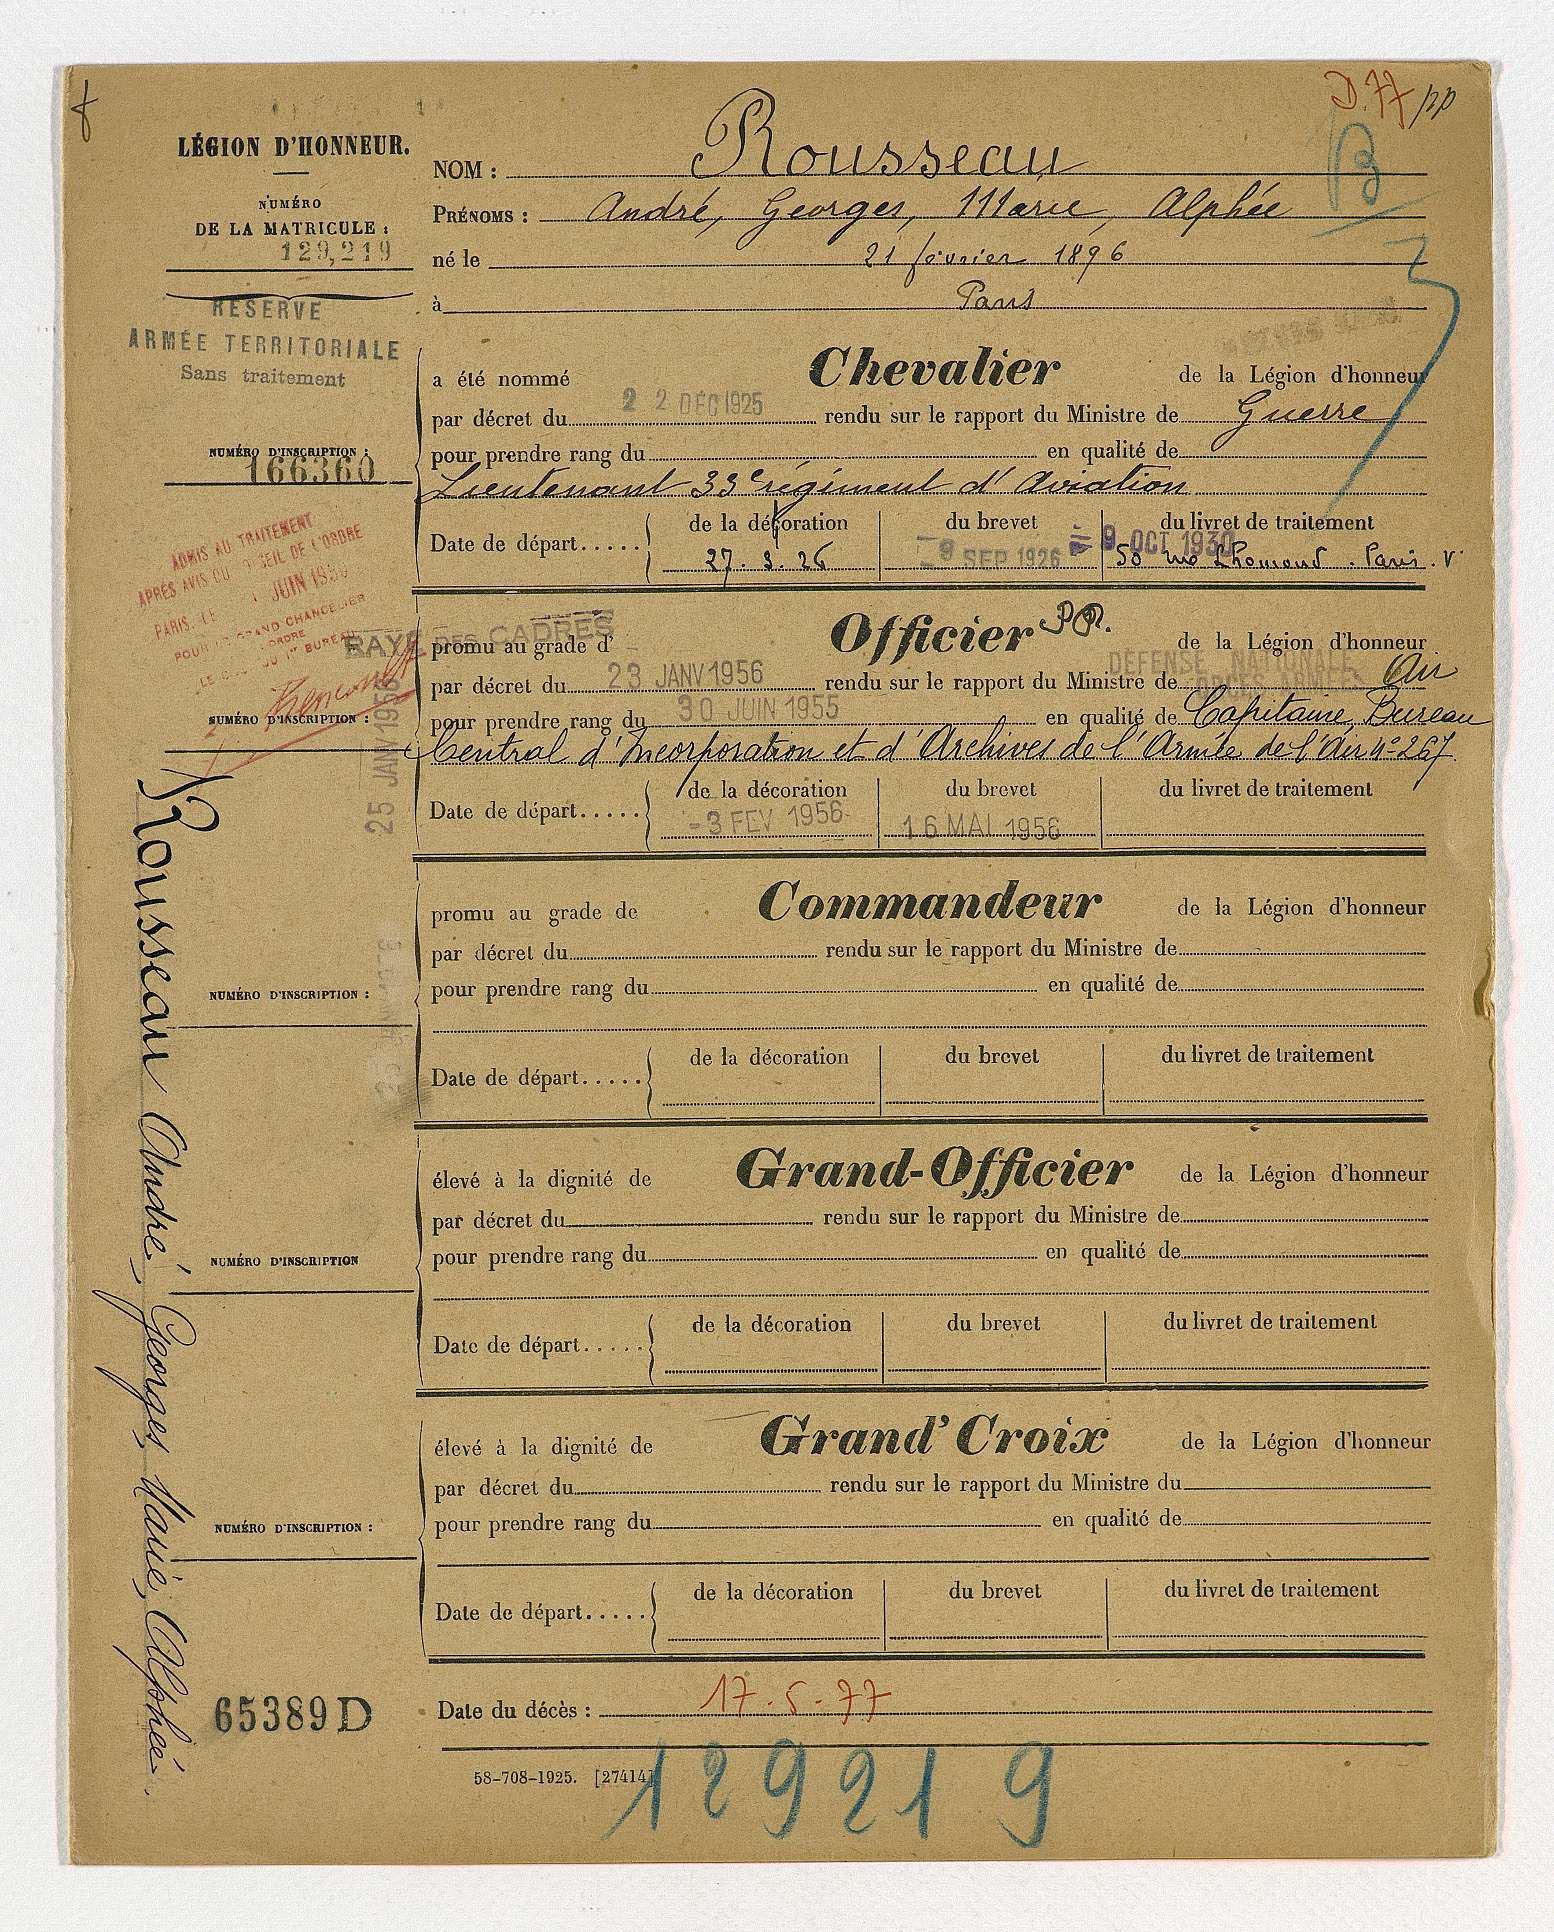 D.77
B
LÉGION D'HONNEUR.
NUMÉRO
DE LA MATRICULE :
129,219
RÉSERVE
ARMÉE TERRITORIALE
Sans traitement
NUMÉRO D'INSCRIPTION :
166360
NOM : Rousseau
PRÉNOMS : André, Georges, Marie, Alphée
né le 21 février 1896
à Paris
a été nommé Chevalier de la Légion d'honneur
par décret du 22 DEC 1925 rendu sur le rapport du Ministre de Guerre
pour prendre rang du en qualité de
Lieutenant 33e régiment d'Aviation
Date de départ..... de la décoration du brevet du livret de traitement
27. 3. 26 9 SEP 1926 9 OCT 1930
50 rue Lhomond. Paris. V
ADMIS AU TRAITEMENT
APRÈS AVIS DU CONSEIL DE L'ORDRE
PARIS, LE JUIN
GRAND CHANCELIER
BUREAU
RAYÉ DES CADRES
25 JANV 1956
NUMÉRO D'INSCRIPTION :
promu au grade d' Officier de la Légion d'honneur
par décret du 23 JANV 1956 rendu sur le rapport du Ministre de DÉFENSE NATIONALE Air
FORCES ARMÉES
pour prendre rang du 30 JUIN 1955 en qualité de Capitaine, Bureau
Central d'Incorporation et d'Archives de l'Armée de l'Air n° 267
Date de départ..... de la décoration du brevet du livret de traitement
-3 FEV 1956 16 MAI 1956
NUMÉRO D'INSCRIPTION :
promu au grade de Commandeur de la Légion d'honneur
par décret du rendu sur le rapport du Ministre de
pour prendre rang du en qualité de
Date de départ..... de la décoration du brevet du livret de traitement
NUMÉRO D'INSCRIPTION
élevé à la dignité de Grand-Officier de la Légion d'honneur
par décret du rendu sur le rapport du Ministre de
pour prendre rang du en qualité de
Date de départ..... de la décoration du brevet du livret de traitement
NUMÉRO D'INSCRIPTION :
élevé à la dignité de Grand'Croix de la Légion d'honneur
par décret du rendu sur le rapport du Ministre du
pour prendre rang du en qualité de
Date de départ..... de la décoration du brevet du livret de traitement
Rousseau André, Georges, Marie, Alphée.
65389 D
Date du décès : 17-5-77
58-708-1925. [27414]
129219